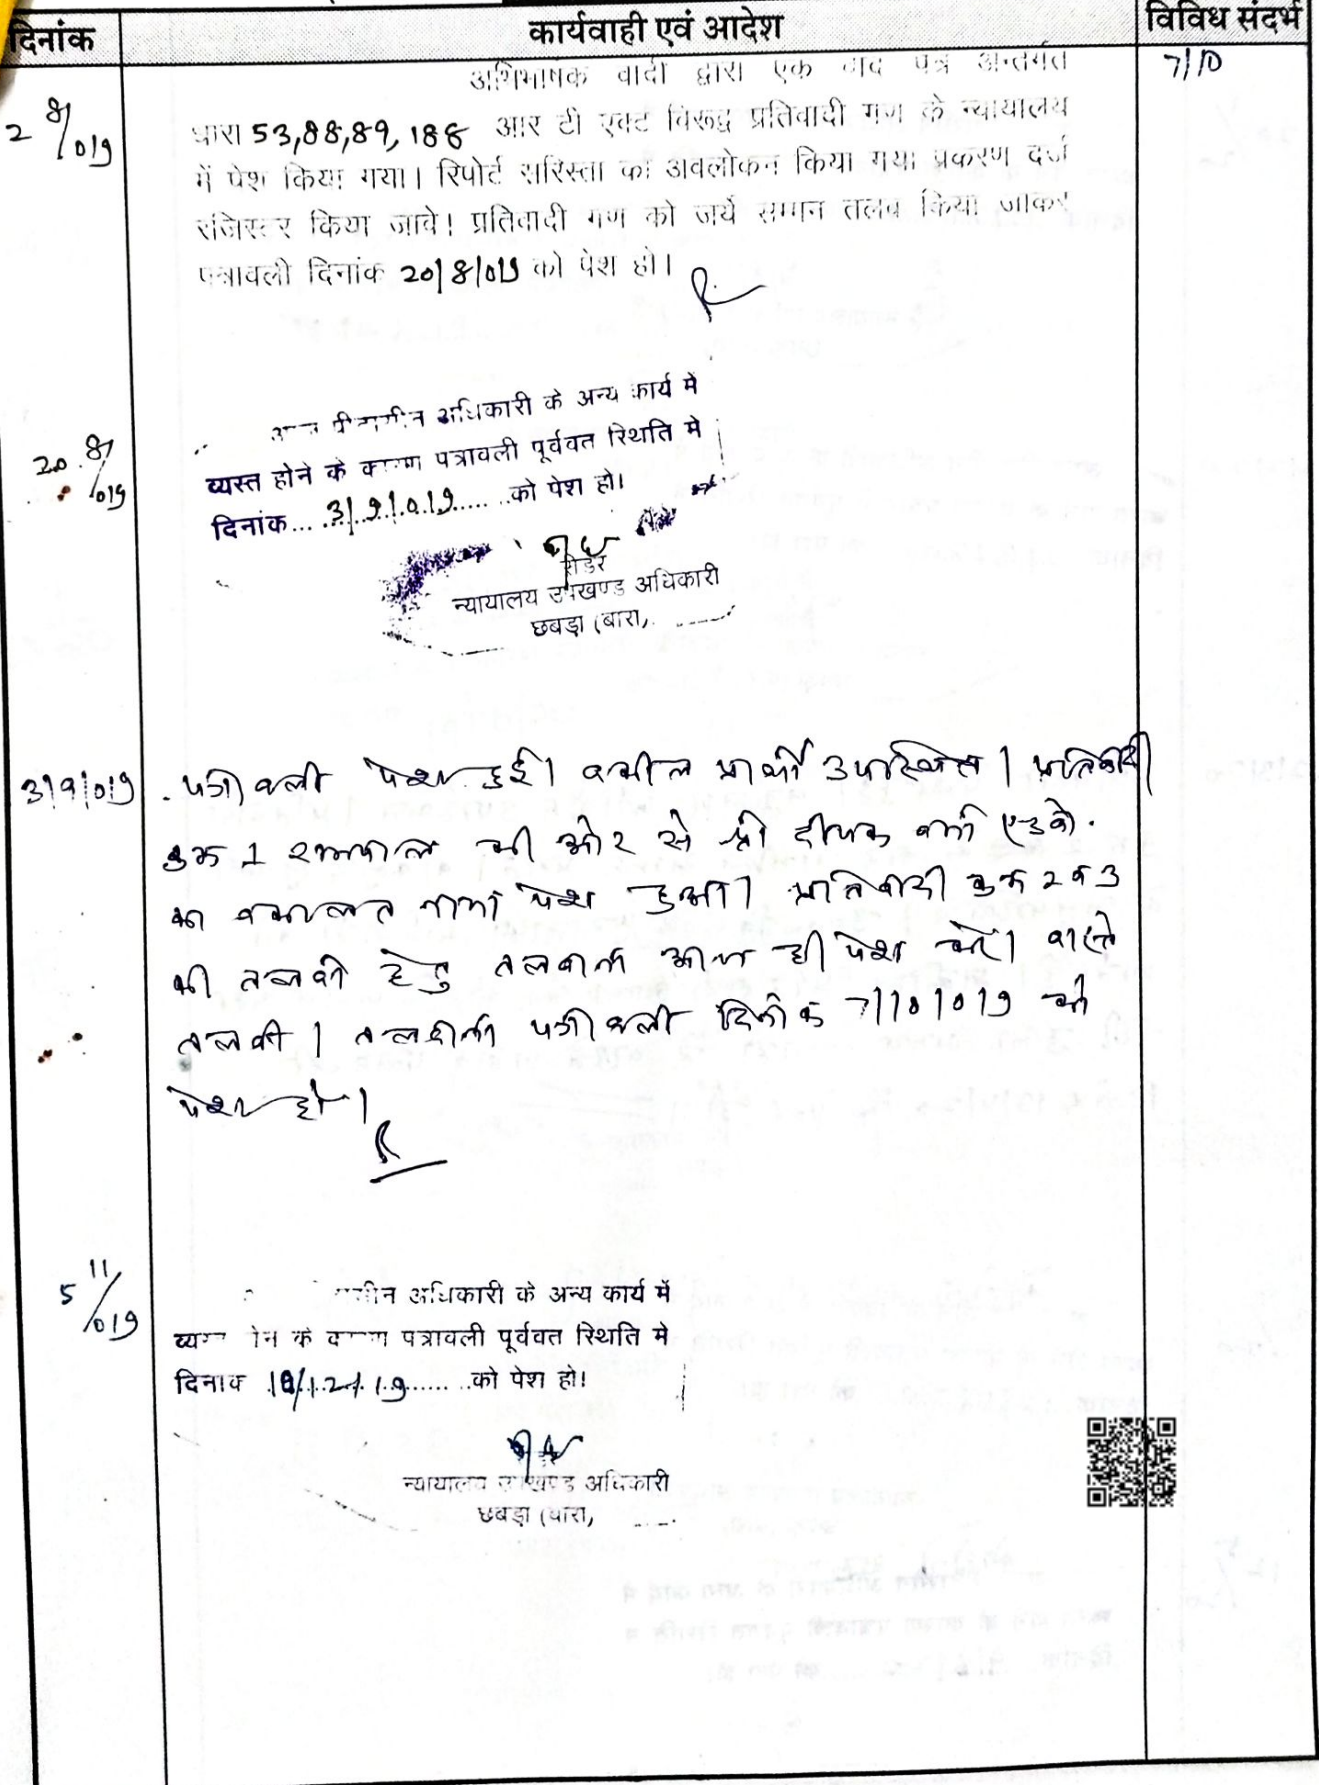 दिनांक कार्यवाही एवं आदेश विविध संदर्भ
7/10
अभिभाषक वादी द्वारा एक वाद पत्र अन्तर्गत
2 8/019 धारा 53,88,89,188 आर टी एक्ट विरूद्व प्रतिवादी गण के न्यायालय
में पेश किया गया। रिपोर्ट सरिस्ता का अवलोकन किया गया प्रकरण दर्ज
रजिस्टर किया जावे। प्रतिवादी गण को जर्ये सम्मन तलब किया जाकर
पत्रावली दिनांक 20/8/019 को पेश हो।
अधिकारी के अन्य कार्य में
20 8/019 व्यस्त होने के कारण पत्रावली पूर्ववत स्थिति मे
दिनांक... 3/9/019 ......को पेश हो।
रीडर
न्यायालय उपखण्ड अधिकारी
छबड़ा (बारा,
3/9/019 पत्रावली पेश हुई। वकील प्रार्थी उपस्थित। प्रतिवादी
1 रामपाल की ओर से श्री दीपक एडवो.
का वकालत नामा पेश हुआ। प्रतिवादी क्रम 2 व 3
की तलबी हेतु तलबाना आज ही पेश करें। वास्ते
तलबी। पत्रावली दिनांक 7/10/019 को
पेश हो।
5 11/019 अधिकारी के अन्य कार्य में
पत्रावली पूर्ववत स्थिति मे
दिनाक 18/12/19 ......को पेश हो।
न्यायालय उपखण्ड अधिकारी
छबड़ा (बारा,